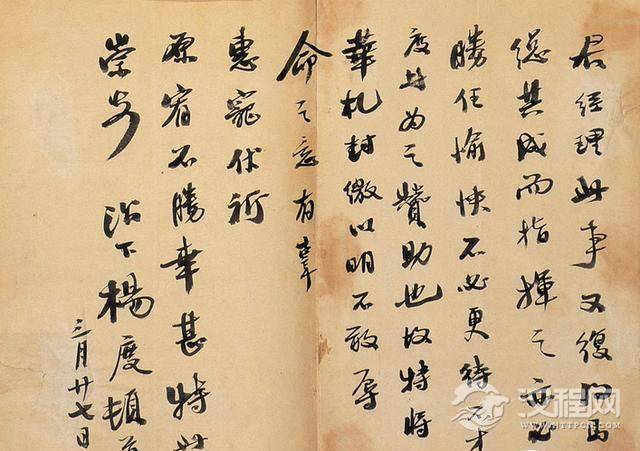 君經理此事又復
總其成而指揮之亦必
勝任愉快不必更待不才
度為之贊助也故特將
華札封繳以明不敢辱
命之意有辜
惠寵伏祈
原宥不勝幸甚特
崇安 治下楊度頓
三月廿七日
汉程网
WWW.HTTPCN.COM